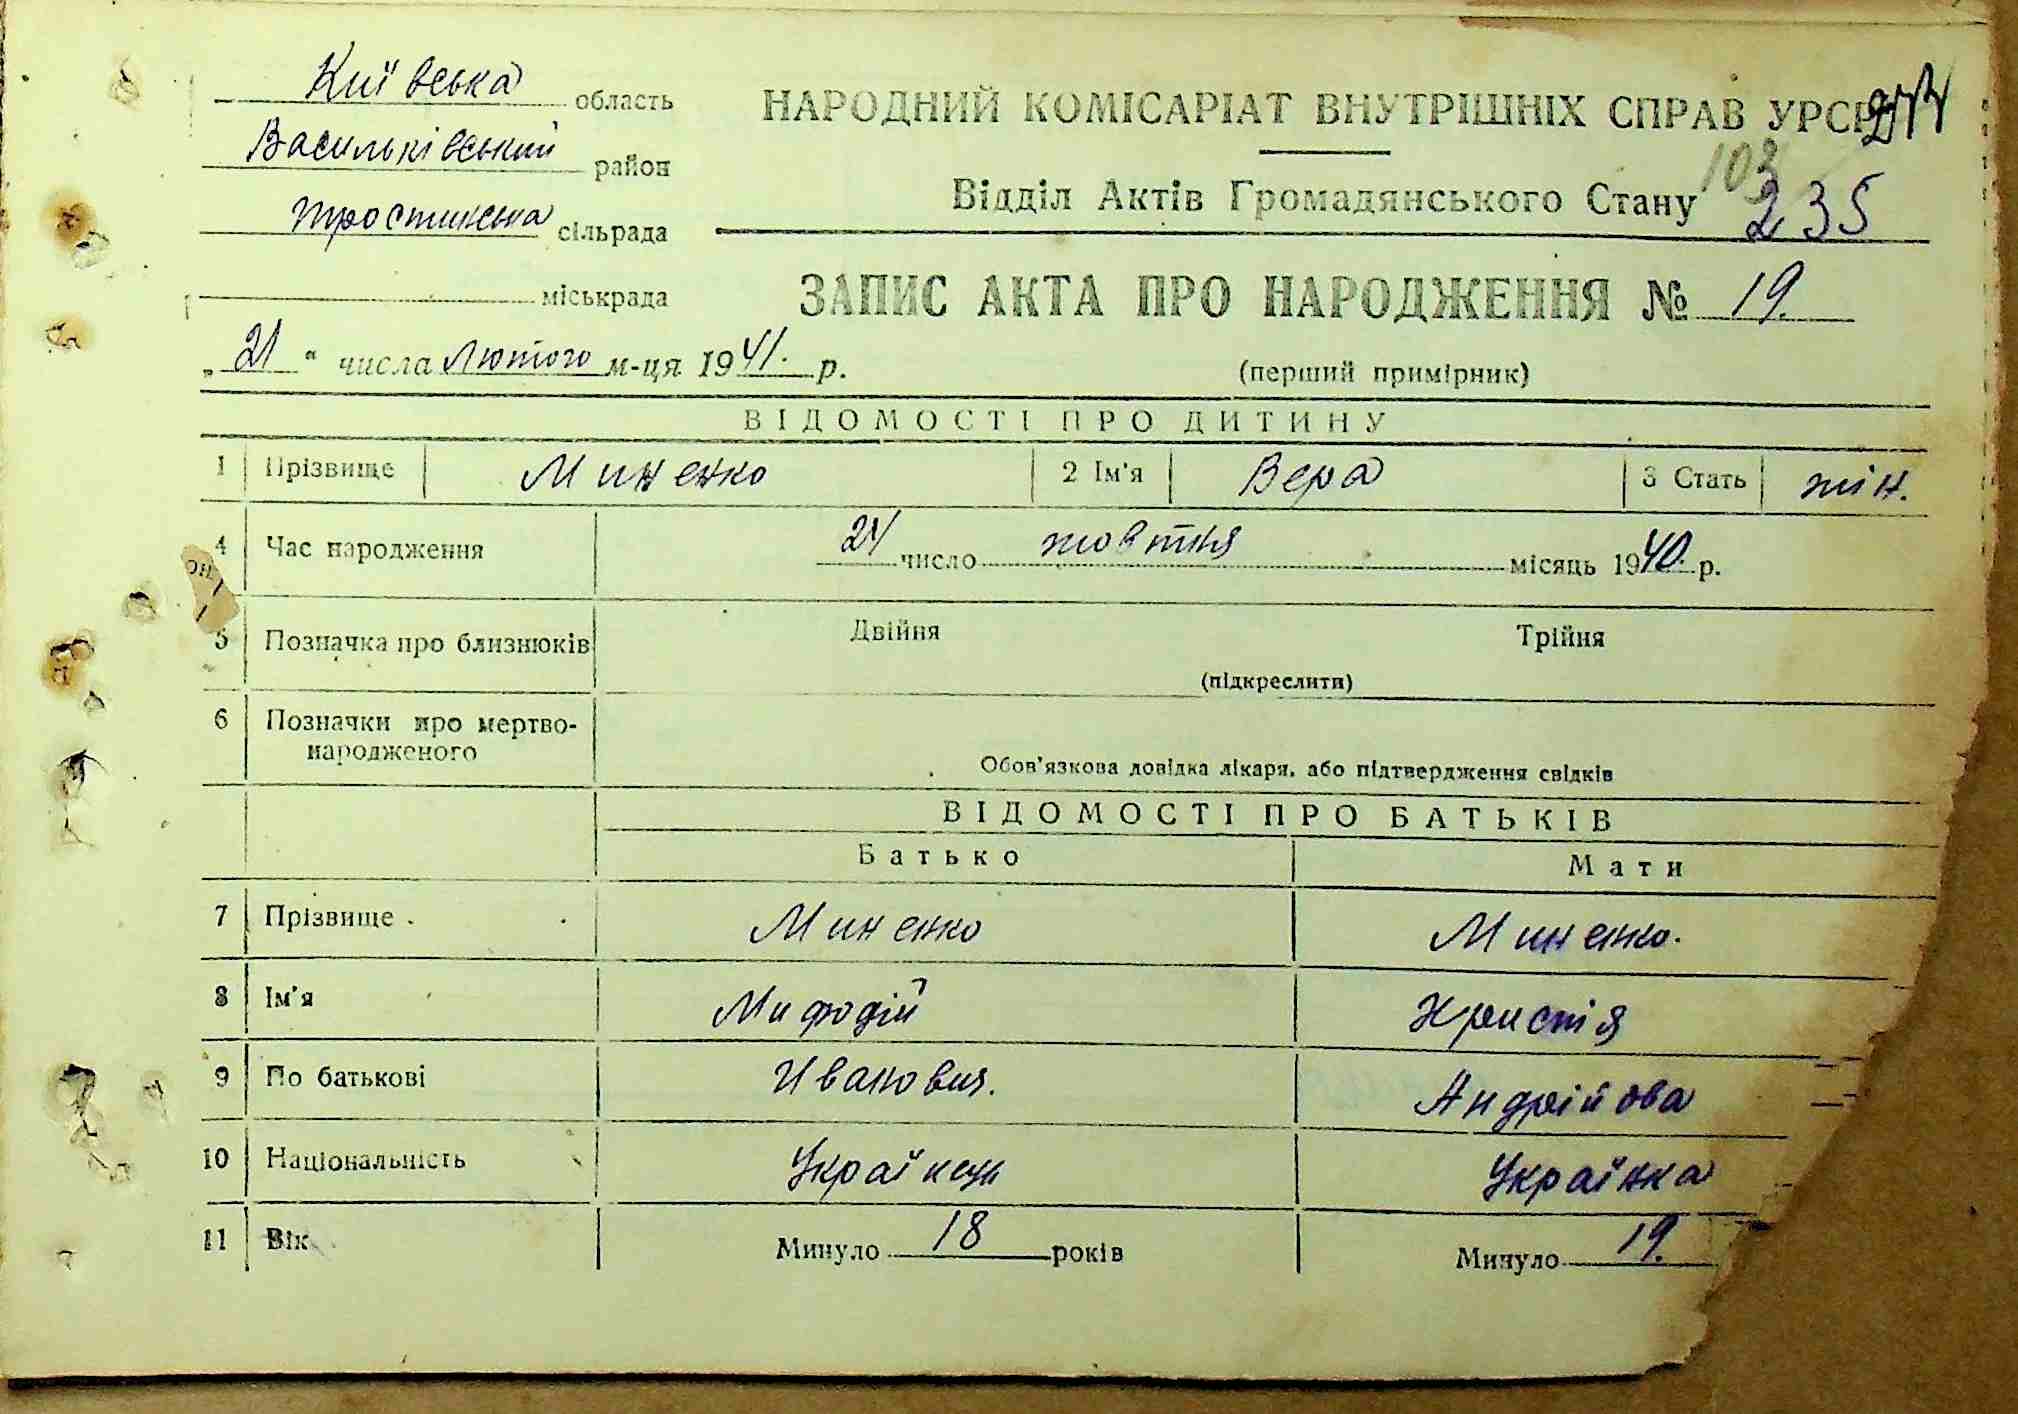 Київська область
Васильківський район
Тростинська сільрада
міськрада
НАРОДНИЙ КОМІСАРІАТ ВНУТРІШНІХ СПРАВ УРСР
103
Відділ Актів Громадянського Стану
235
ЗАПИС АКТА ПРО НАРОДЖЕННЯ № 19.
„21“ числа Лютого м-ця 1941. р.
(перший примірник)
ВІДОМОСТІ ПРО ДИТИНУ
1 Прізвище Миненко 2 Ім'я Вера 3 Стать жін.
4 Час народження 24 число жовтня місяць 1940. р.
5 Позначка про близнюків Двійня Трійня
(підкреслити)
6 Позначки про мертво-
народженого
Обов'язкова довідка лікаря, або підтвердження свідків
ВІДОМОСТІ ПРО БАТЬКІВ
Батько Мати
7 Прізвище Миненко Миненко.
8 Ім'я Мифодій Христія
9 По батькові Иванович. Андрійова
10 Національність Українец Українка
11 Вік Минуло 18 років Минуло 19.